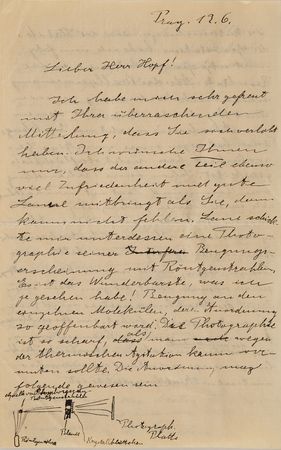 Prag. 12.6.
Lieber Herr Hopf!
Ich habe mich sehr gefreut
mit Ihrer überraschenden
Mitteilung, dass Sie sich verlobt
haben. Ich wünsche Ihnen
nur, dass der andere Teil ebenso
viel Zufriedenheit und gute
Laune mitbringt als Sie, dann
kann nicht fehlen. Laue schick-
te mir unterdessen eine Photo-
graphie seiner Beugungs-
erscheinung mit Röntgenstrahlen.
Es ist das Wunderbarste, was ich
je gesehen habe! Beugung an den
einzelnen Molekülen, deren Anordnung
so geoffenbart wird. Die Photographie
ist so scharf, als man wegen
der thermischen Agitation kaum ver-
muten sollte. Die Anordnung mag
folgende gewesen sein
Photograph.
Platte
Blende